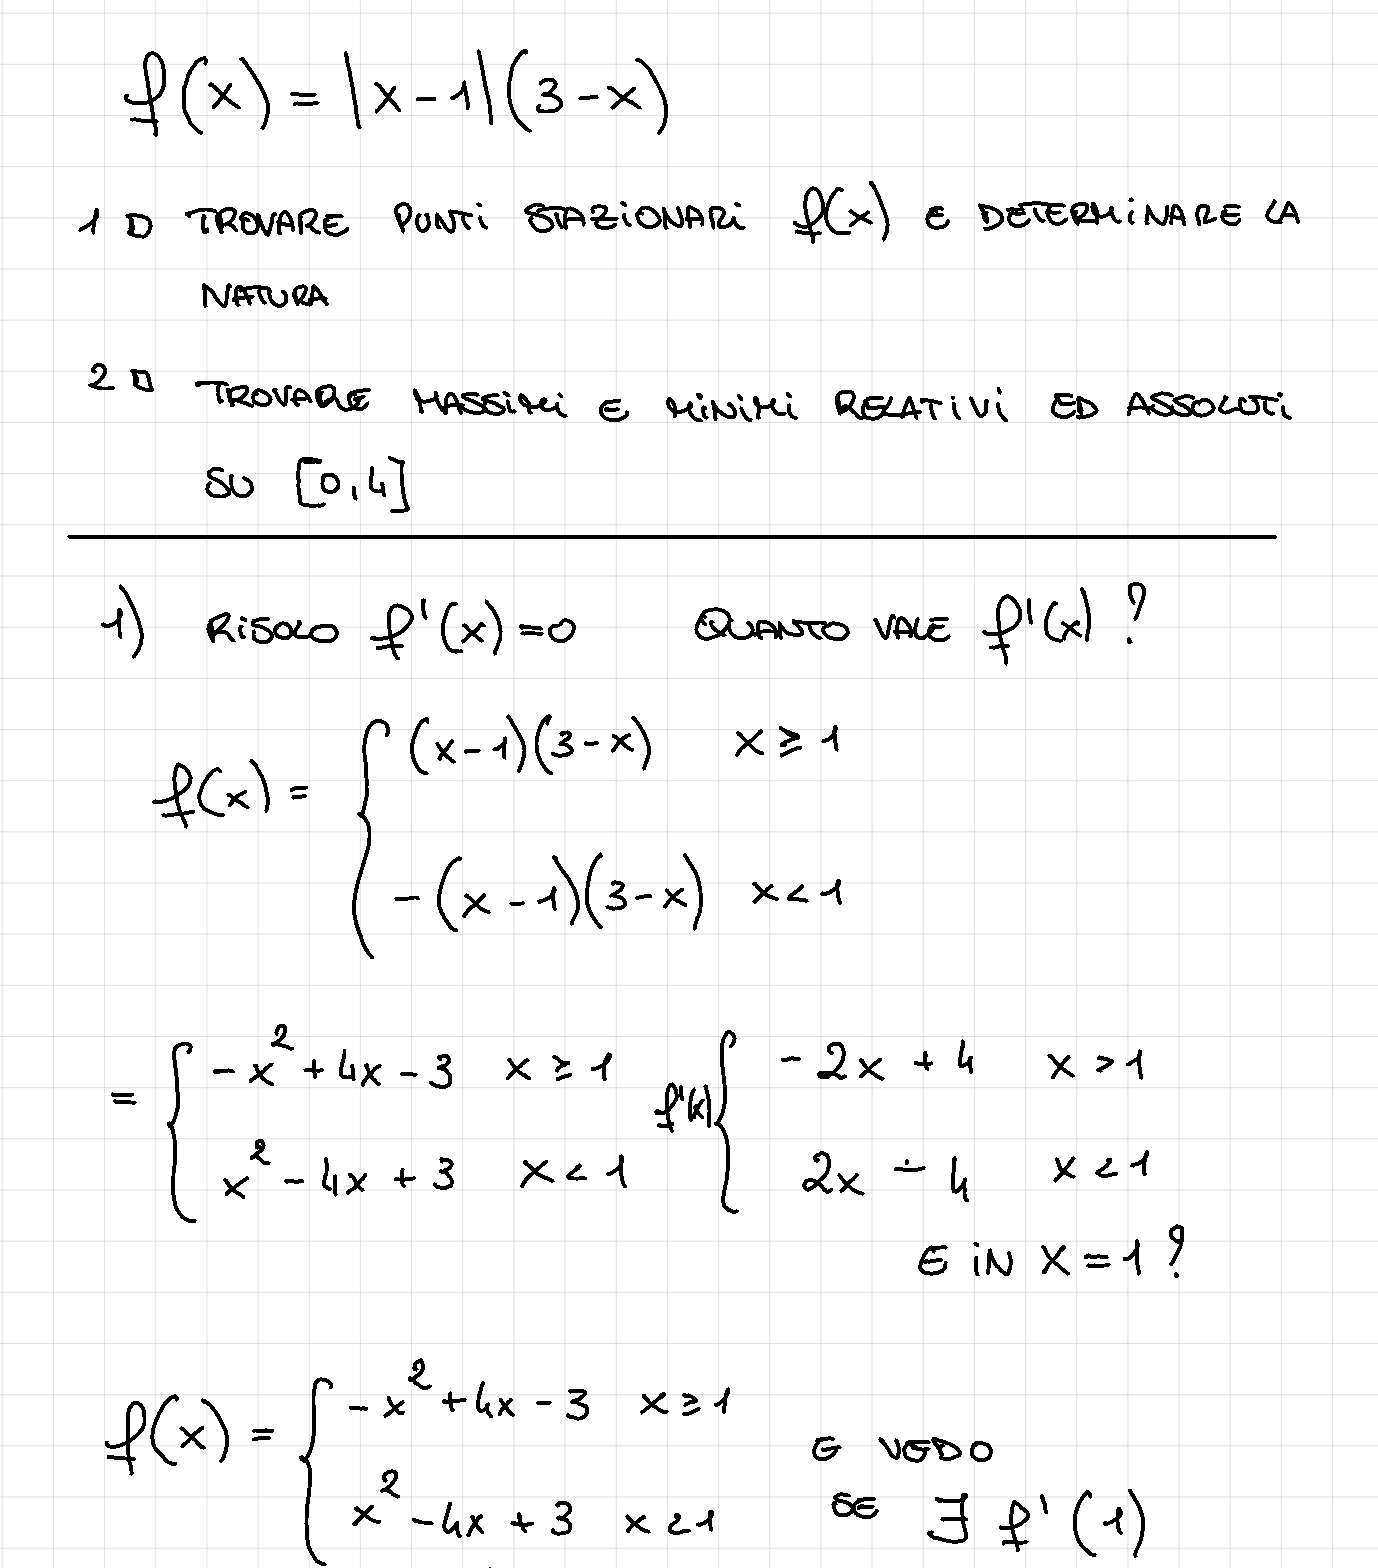 f(x) = |x-1|(3-x)
1 D TROVARE PUNTI STAZIONARI f(x) E DETERMINARE LA
NATURA
2 D TROVARE MASSIMI E MINIMI RELATIVI ED ASSOLUTI
SU [0,4]
1) RISOLO f'(x)=0 QUANTO VALE f'(x) ?
f(x) = { (x-1)(3-x) x ≥ 1
-(x-1)(3-x) x < 1
= { -x² + 4x - 3 x ≥ 1 f'(x) { -2x + 4 x > 1
x² - 4x + 3 x < 1 2x - 4 x < 1
E IN X = 1 ?
f(x) = { -x² + 4x - 3 x ≥ 1 E VEDO
x² - 4x + 3 x < 1 SE ∃ f'(1)